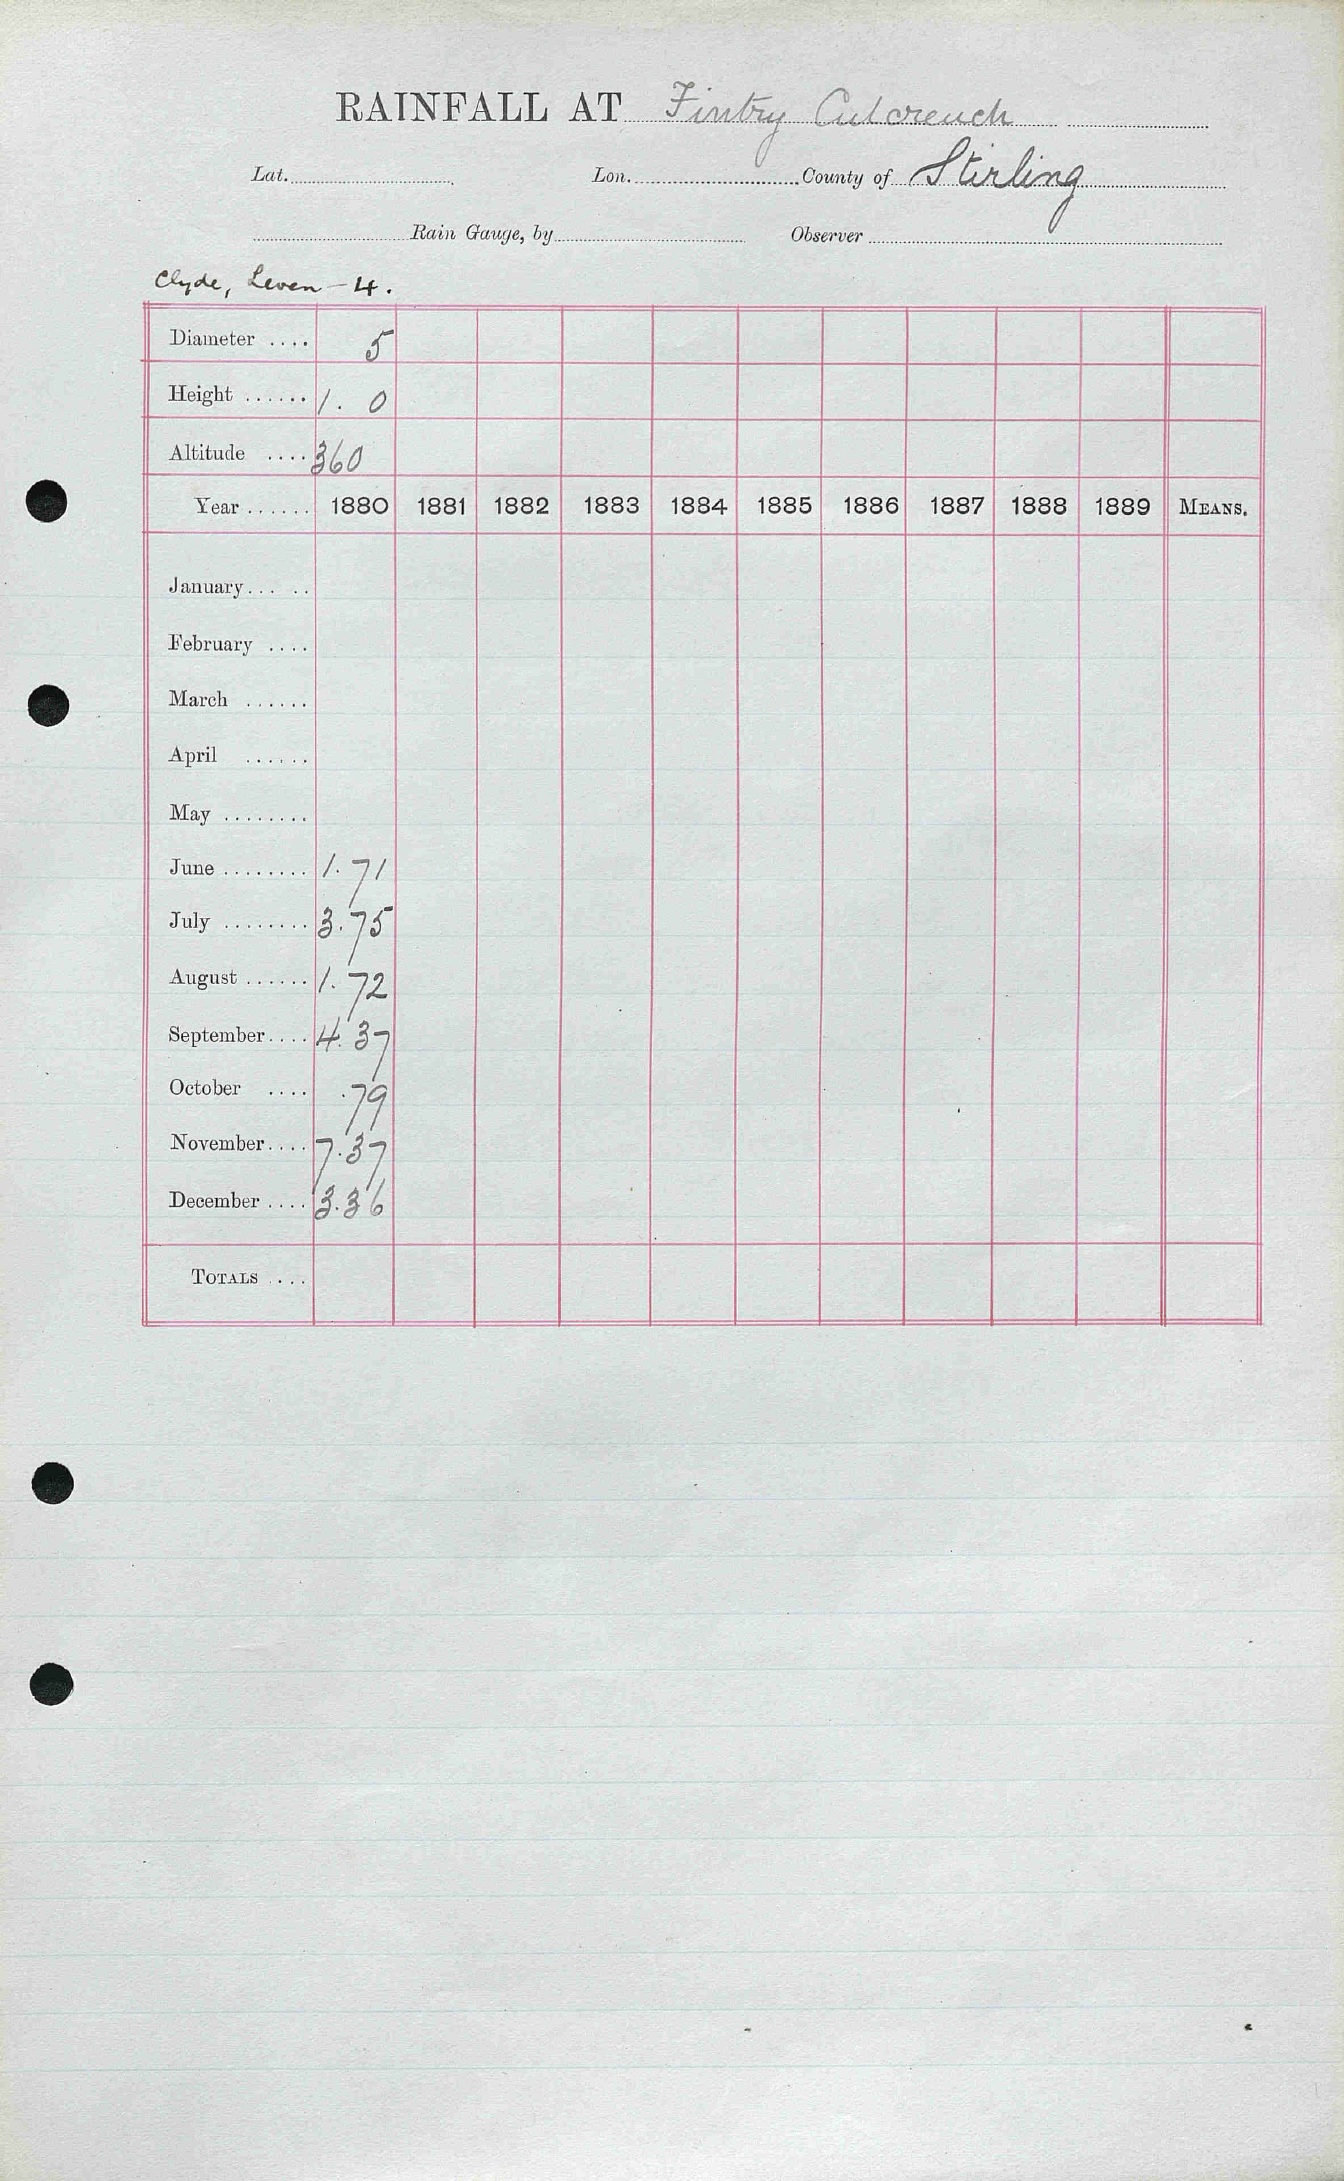 RAINFALL AT Fintry Culcreuch
Lat. Lon. County of Stirling
Rain Gauge, by Observer
Clyde, Leven - 4.
Diameter .... 5
Height ...... 1. 0
Altitude .... 360
Year ...... 1880 1881 1882 1883 1884 1885 1886 1887 1888 1889 MEANS.
January... ..
February ....
March ......
April ......
May ........
June ........ 1. 71
July ........ 3.75
August ...... 1. 72
September.... 4.37
October .... .79
November.... 7.37
December .... 3.36
TOTALS ....